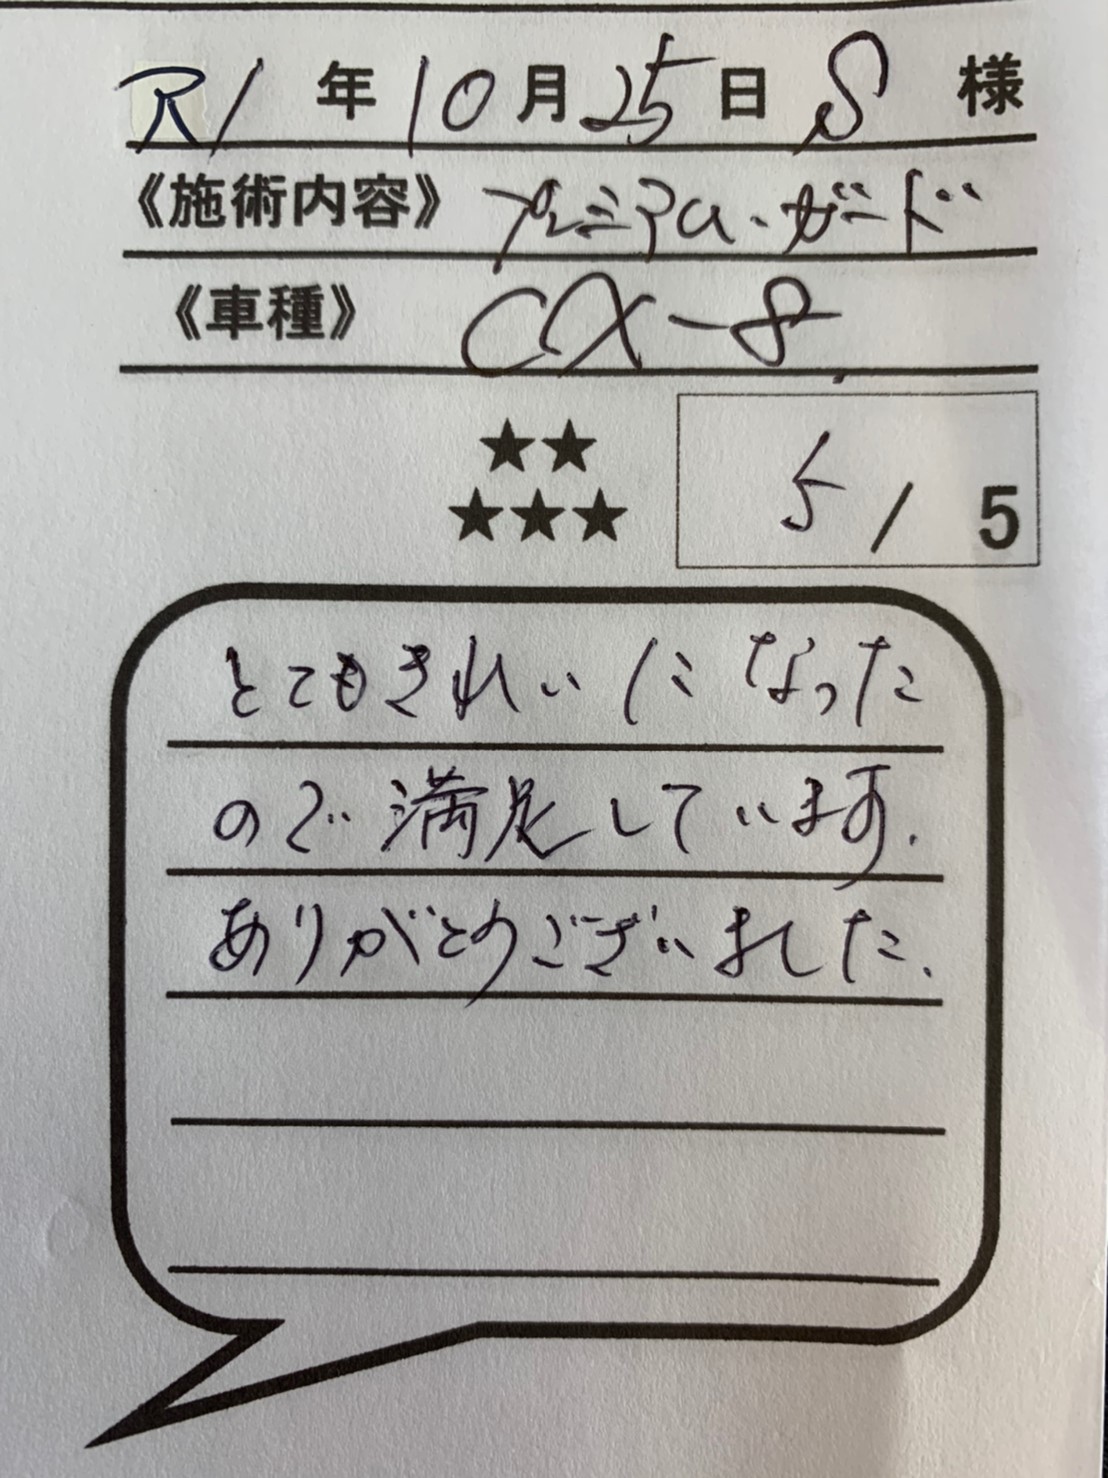 R1年10月25日 S 様
《施術内容》 プレミアム・ガード
《車種》 CX-8
★★
★★★
5/5
とてもきれいになった
ので満足しています.
ありがとうございました.